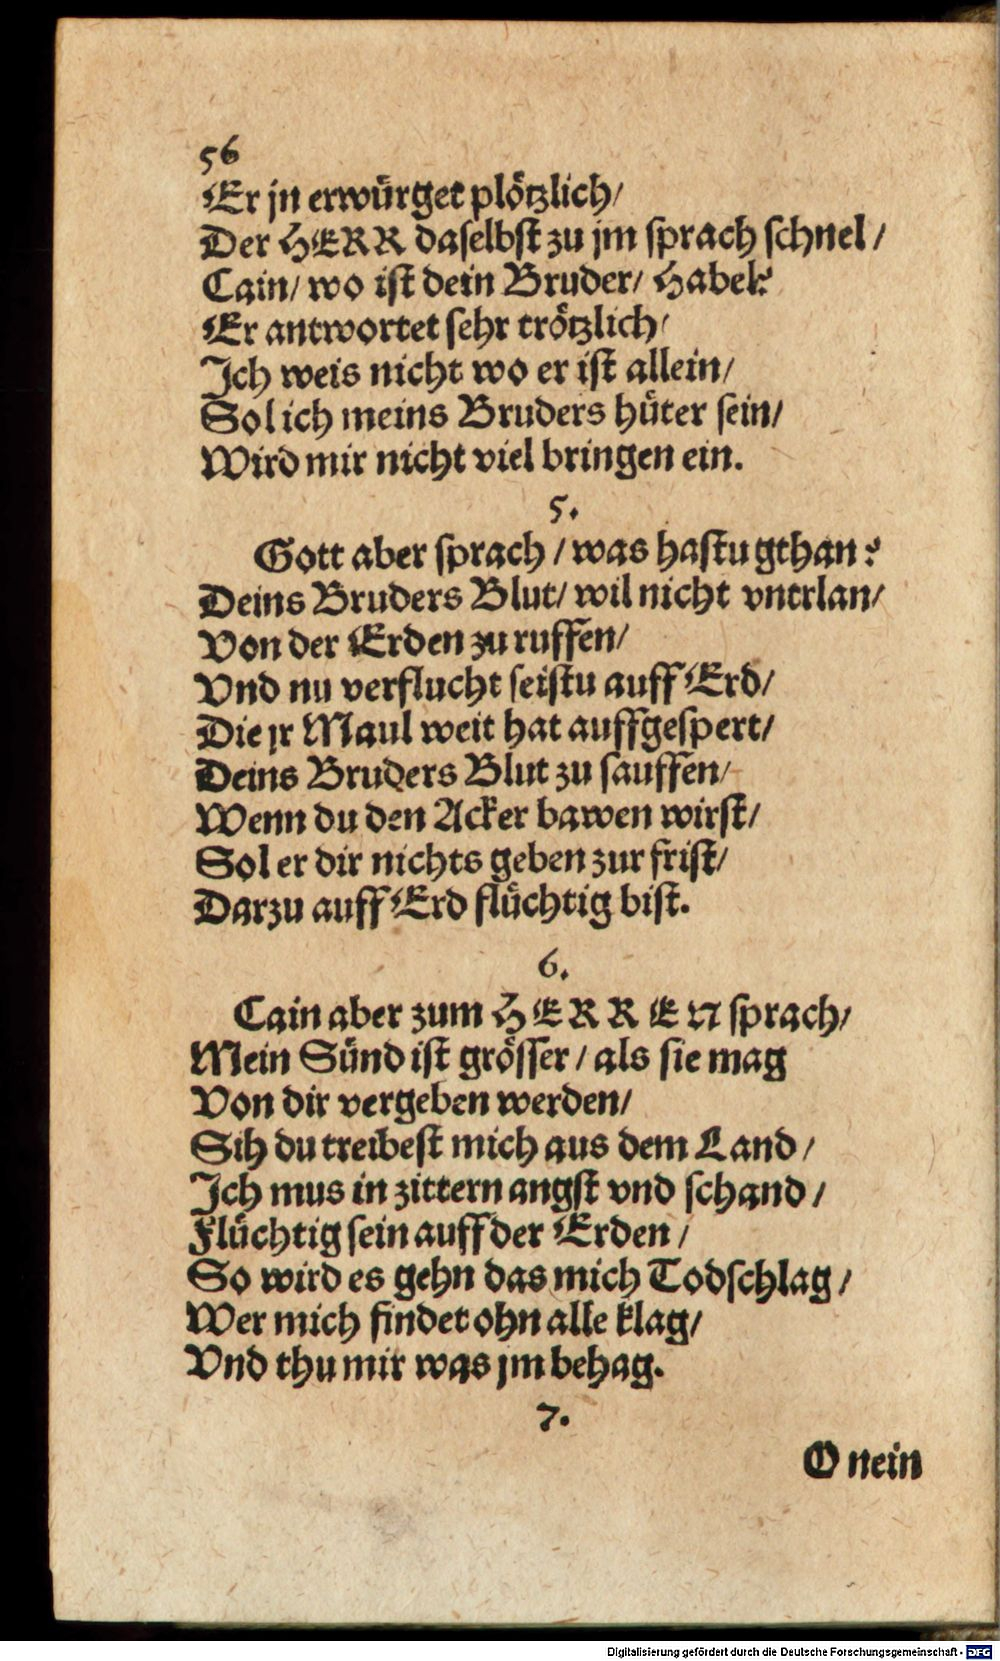 56
Er jn erwürget plötzlich/
Der HERR daselbst zu jm sprach schnel/
Cain/ wo ist dein Bruder/ Habel?
Er antwortet sehr trötzlich/
Ich weis nicht wo er ist allein/
Sol ich meins Bruders hüter sein/
Wird mir nicht viel bringen ein.
5.
Gott aber sprach/ was hastu gthan?
Deins Bruders Blut/ wil nicht vntrlan/
Von der Erden zu ruffen/
Vnd nu verflucht seistu auff Erd/
Die jr Maul weit hat auffgespert/
Deins Bruders Blut zu sauffen/
Wenn du den Acker bawen wirst/
Sol er dir nichts geben zur frist/
Darzu auff Erd flüchtig bist.
6.
Cain aber zum HERREN sprach/
Mein Sünd ist grösser/ als sie mag
Von dir vergeben werden/
Sih du treibest mich aus dem Land/
Ich mus in zittern angst vnd schand/
Flüchtig sein auff der Erden/
So wird es gehn das mich Todschlag/
Wer mich findet ohn alle klag/
Vnd thu mir was jm behag.
7.
O nein
Digitalisierung gefördert durch die Deutsche Forschungsgemeinschaft - DFG